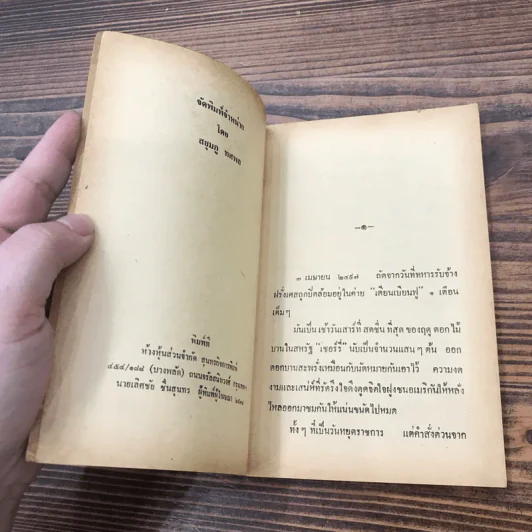 จัดพิมพ์จำหน่าย
โดย
สยุมภู ทศพล
พิมพ์ที่
ห้างหุ้นส่วนจำกัด สุนทรกิจการพิมพ์
๔๕๔/๑๘๘ (บางพลัด) ถนนจรัลสนิทวงศ์
นายเลิศชัย ชื่นสุนทร ผู้พิมพ์ผู้โฆษณา
—๑—
๓ เมษายน ๒๔๙๗ ถัดจากวันที่ทหารรับจ้าง
ฝรั่งเศสถูกปิดล้อมอยู่ในค่าย “เดียนเบียนฟู” ๑ เดือน
เต็มๆ
มันเป็นเช้าวันเสาร์ที่ สดชื่น ที่สุด ของฤดู ดอกไม้
บานในสหรัฐ “เชอร์รี่” นับเป็นจำนวนแสนๆ ต้น ออก
ดอกบานสะพรั่งเหมือนกับนัดหมายกันเอาไว้ ความงด
งามและเสน่ห์ที่รัดรึงใจดึงดูดจิตใจฝูงชนอเมริกันให้หลั่ง
ไหลออกมาชมกันไห้แน่นขนัดไปหมด
ทั้งๆ ที่เป็นวันหยุดราชการ แต่คำสั่งด่วนจาก